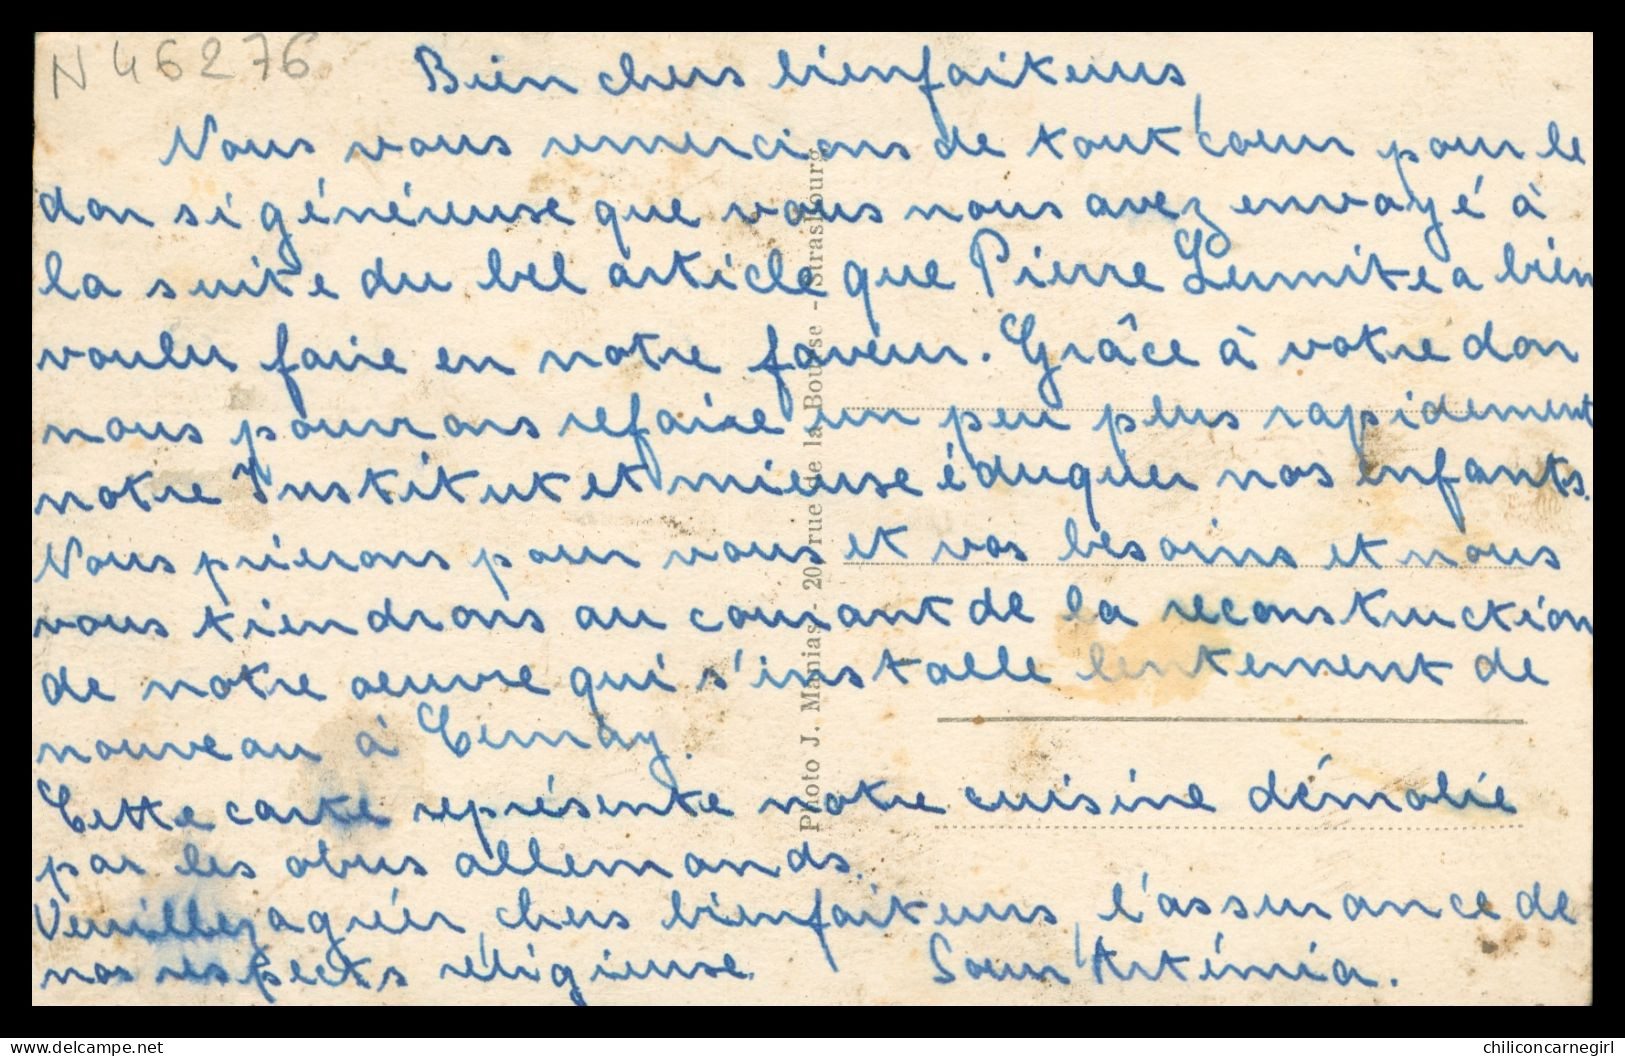 N 46276
Bien chers bienfaiteurs,
Nous vous remercions de tout coeur pour le
don si généreuse que vous nous avez envoyé à
la suite du bel article que Pierre Lumite a bien
voulu faire en notre faveur. Grâce à votre don
nous pourrons refaire un peu plus rapidement
notre Institut et mieuse éduquer nos enfants.
Nous prierons pour vous et vos besoins et nous
vous tiendrons au courant de la reconstruction
de notre oeuvre qui s'installe lentement de
nouveau à Cernay.
Cette carte représente notre cuisine démolie
par les obus allemands.
Veuillez agréér, chers bienfaiteurs, l'assurance de
nos respects réligieuse.
Soeur Artémia.
Photo J. Manias - 20, rue de la Bourse - Strasbourg
chiliconcarnegirl